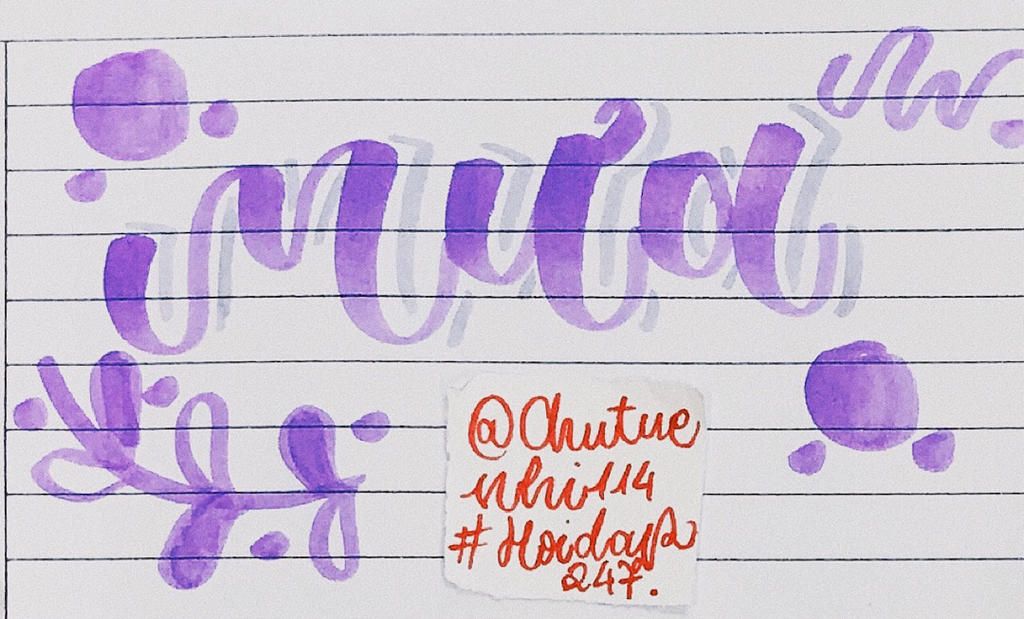 mưa
@Chutue
nhi114
#Hoidap
247.